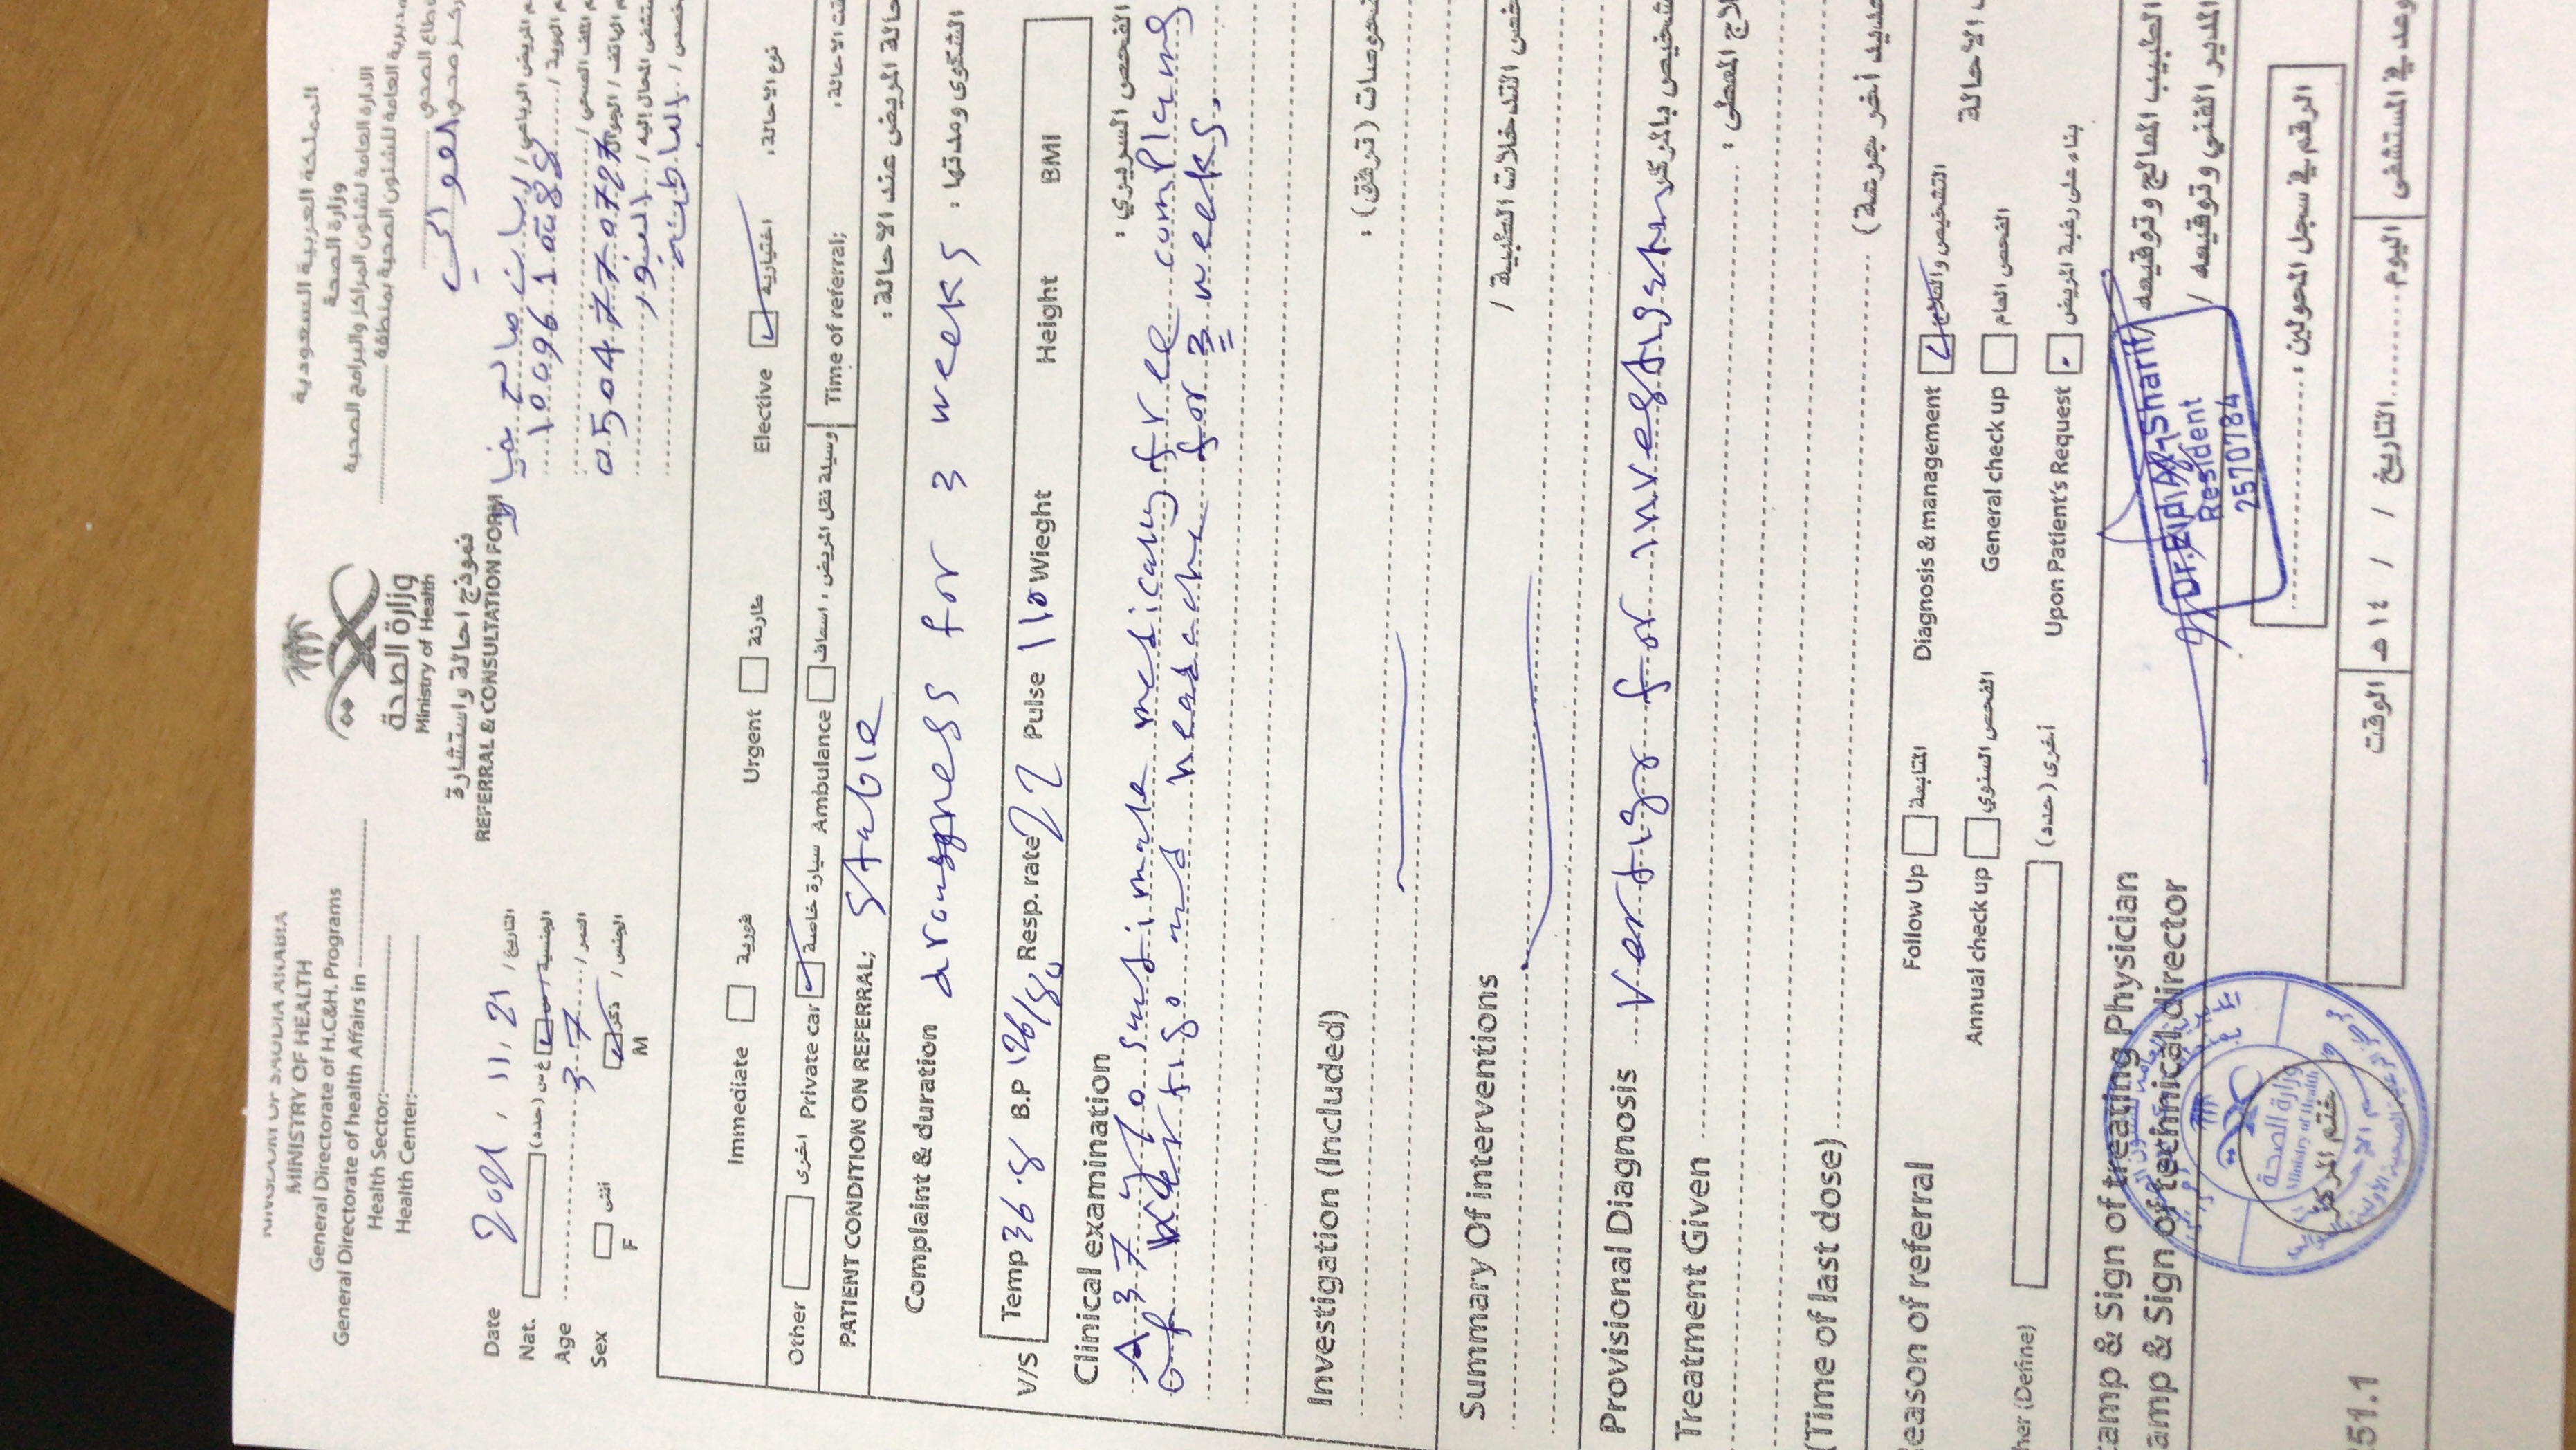 KINGDOM OF SAUDIA ARABIA
MINISTRY OF HEALTH
General Directorate of H.C&H. Programs
General Directorate of health Affairs in
Health Sector:
Health Center:
وزارة الصحة
Ministry of Health
نموذج احالة واستشارة
REFERRAL & CONSULTATION FORM
المملكة العربية السعودية
وزارة الصحة
الادارة العامة لشئون المراكز والبرامج الصحية
مديرية العامة للشئون الصحية بمنطقة
طاع الصحي
ركز صحي العوالي
Date 2021 , 11 , 21 التاريخ /
Nat. غ س (حدد) س الجنسية /
Age 37 العمر /
Sex أنثى ذكر الجنس /
F M
م المريض الرباعي / ريان صالح خياط
م الهوية / 1009610088
م الملف الصحي /
م الهاتف / الجوال 0504770727
ستشفى المحال إليه /
خصص / الباطنة
Immediate فورية Urgent طارئة Elective اختيارية نوع الاحالة :
Other اخرى Private car سيارة خاصة Ambulance وسيلة نقل المريض : اسعاف Time of referral; قت الاحالة :
PATIENT CONDITION ON REFERRAL; Stable حالة المريض عند الاحالة :
Complaint & duration for 3 weeks الشكوى ومدتها :
V/S Temp 36.8 B.P 126/80 Resp. rate 22 Pulse 110 Wieght Height BMI
Clinical examination الفحص السريري :
A 37 y/o male medically free complaing
of vertigo and headache for 3 weeks.
Investigation (Included) حوصات (ترفق) :
Summary Of interventions خص التدخلات الطبية /
Provisional Diagnosis Vertigo for investigation شخيص بالمركز
Treatment Given لاج المعطى :
(Time of last dose) حديد أخر جرعة)
eason of referral Follow Up المتابعة Diagnosis & management التشخيص والعلاج ب الاحالة
Annual check up الفحص السنوي General check up الفحص العام
her (Define) أخرى (حدد) Upon Patient's Request بناء على رغبة المريض
tamp & Sign of treating Physician الطبيب المعالج وتوقيعه /
amp & Sign of technical director المدير الفني وتوقيعه /
Dr.Eid Al-Sharif
Resident
2570784
وزارة الصحة
Ministry of Health
ختم المركز
الرقم في سجل المحولين :
251.1
وعد في المستشفى اليوم التاريخ / / ١٤ هـ الوقت